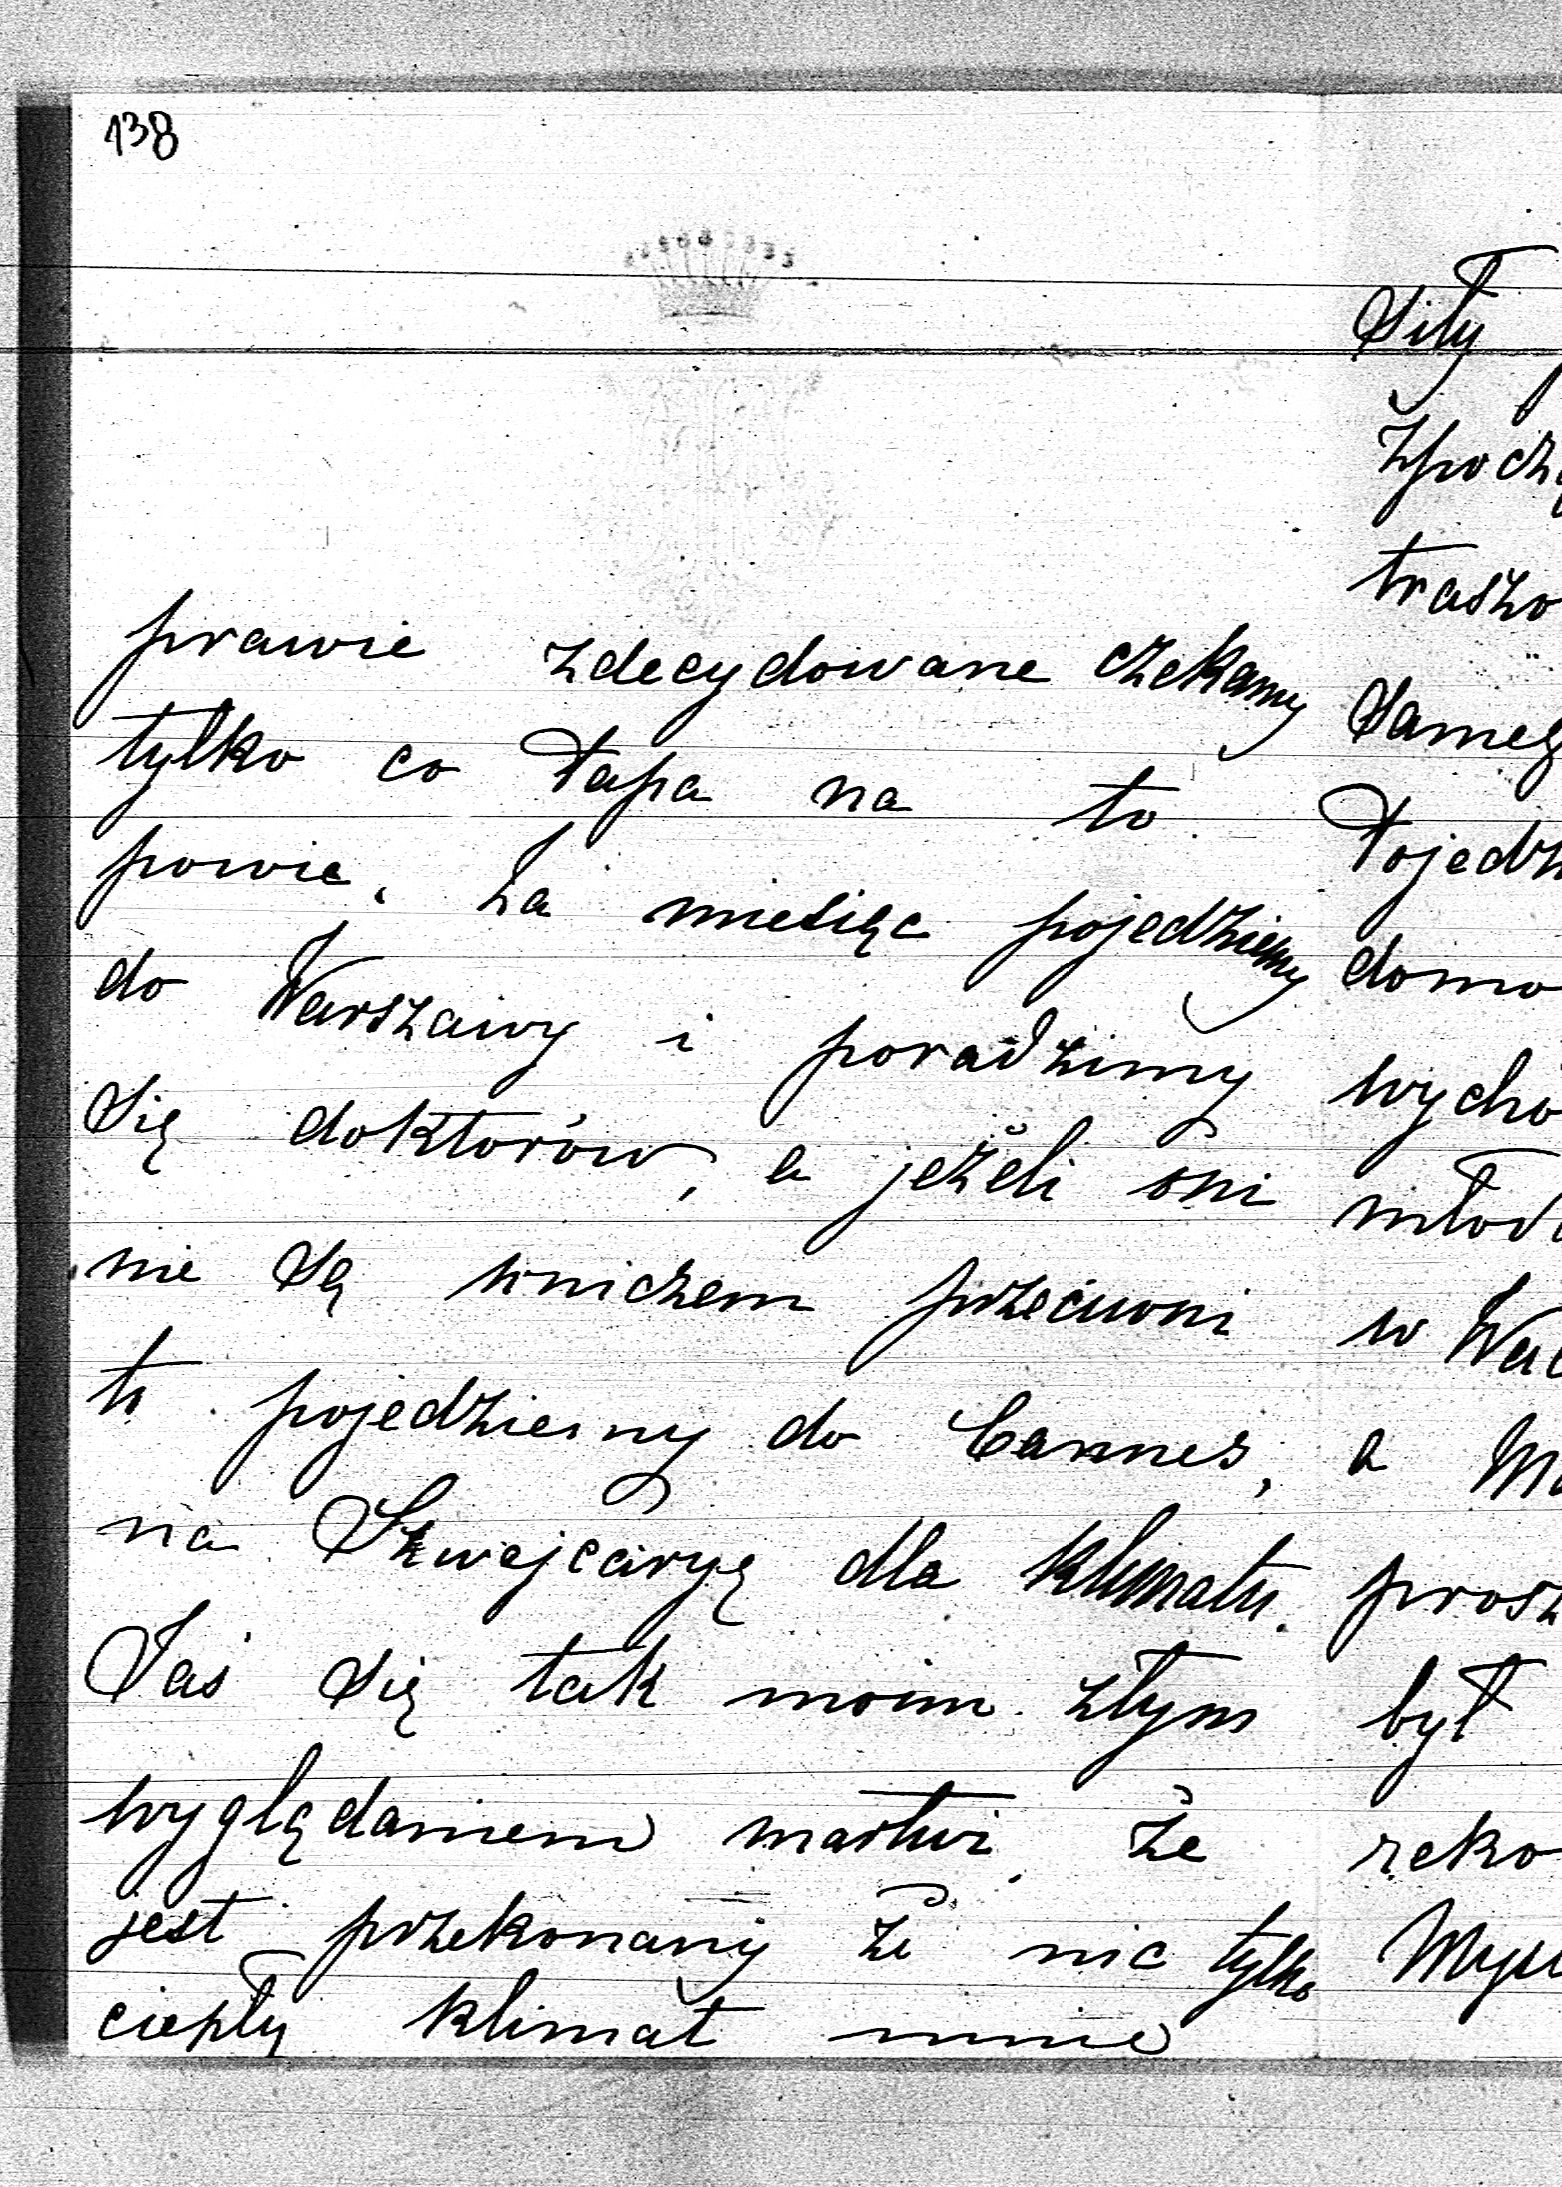 138
prawie zdecydowane czekamy
tylko co Papa na to
powie. Za miesiąc pojedziemy
do Warszawy i poradzimy
się doktorów, a jeżeli oni
nie są wniczem przeciwni
to pojedziemy do Cannes,
na Szwejcaryę dla klimatu.
Jaś się tak moim złym
wyglądaniem martwi, że
jest przekonany że nic tylko
ciepły klimat mnie
Siły
traszo
Sameg
Pojedz
domo
wycho
młod
w Wa
a M
prosz
był
reko